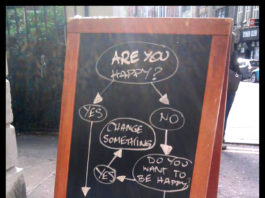 ARE YOU
HAPPY?
YES
NO
CHANGE
SOMETHING
DO YOU
WANT TO
BE HAPPY
YES